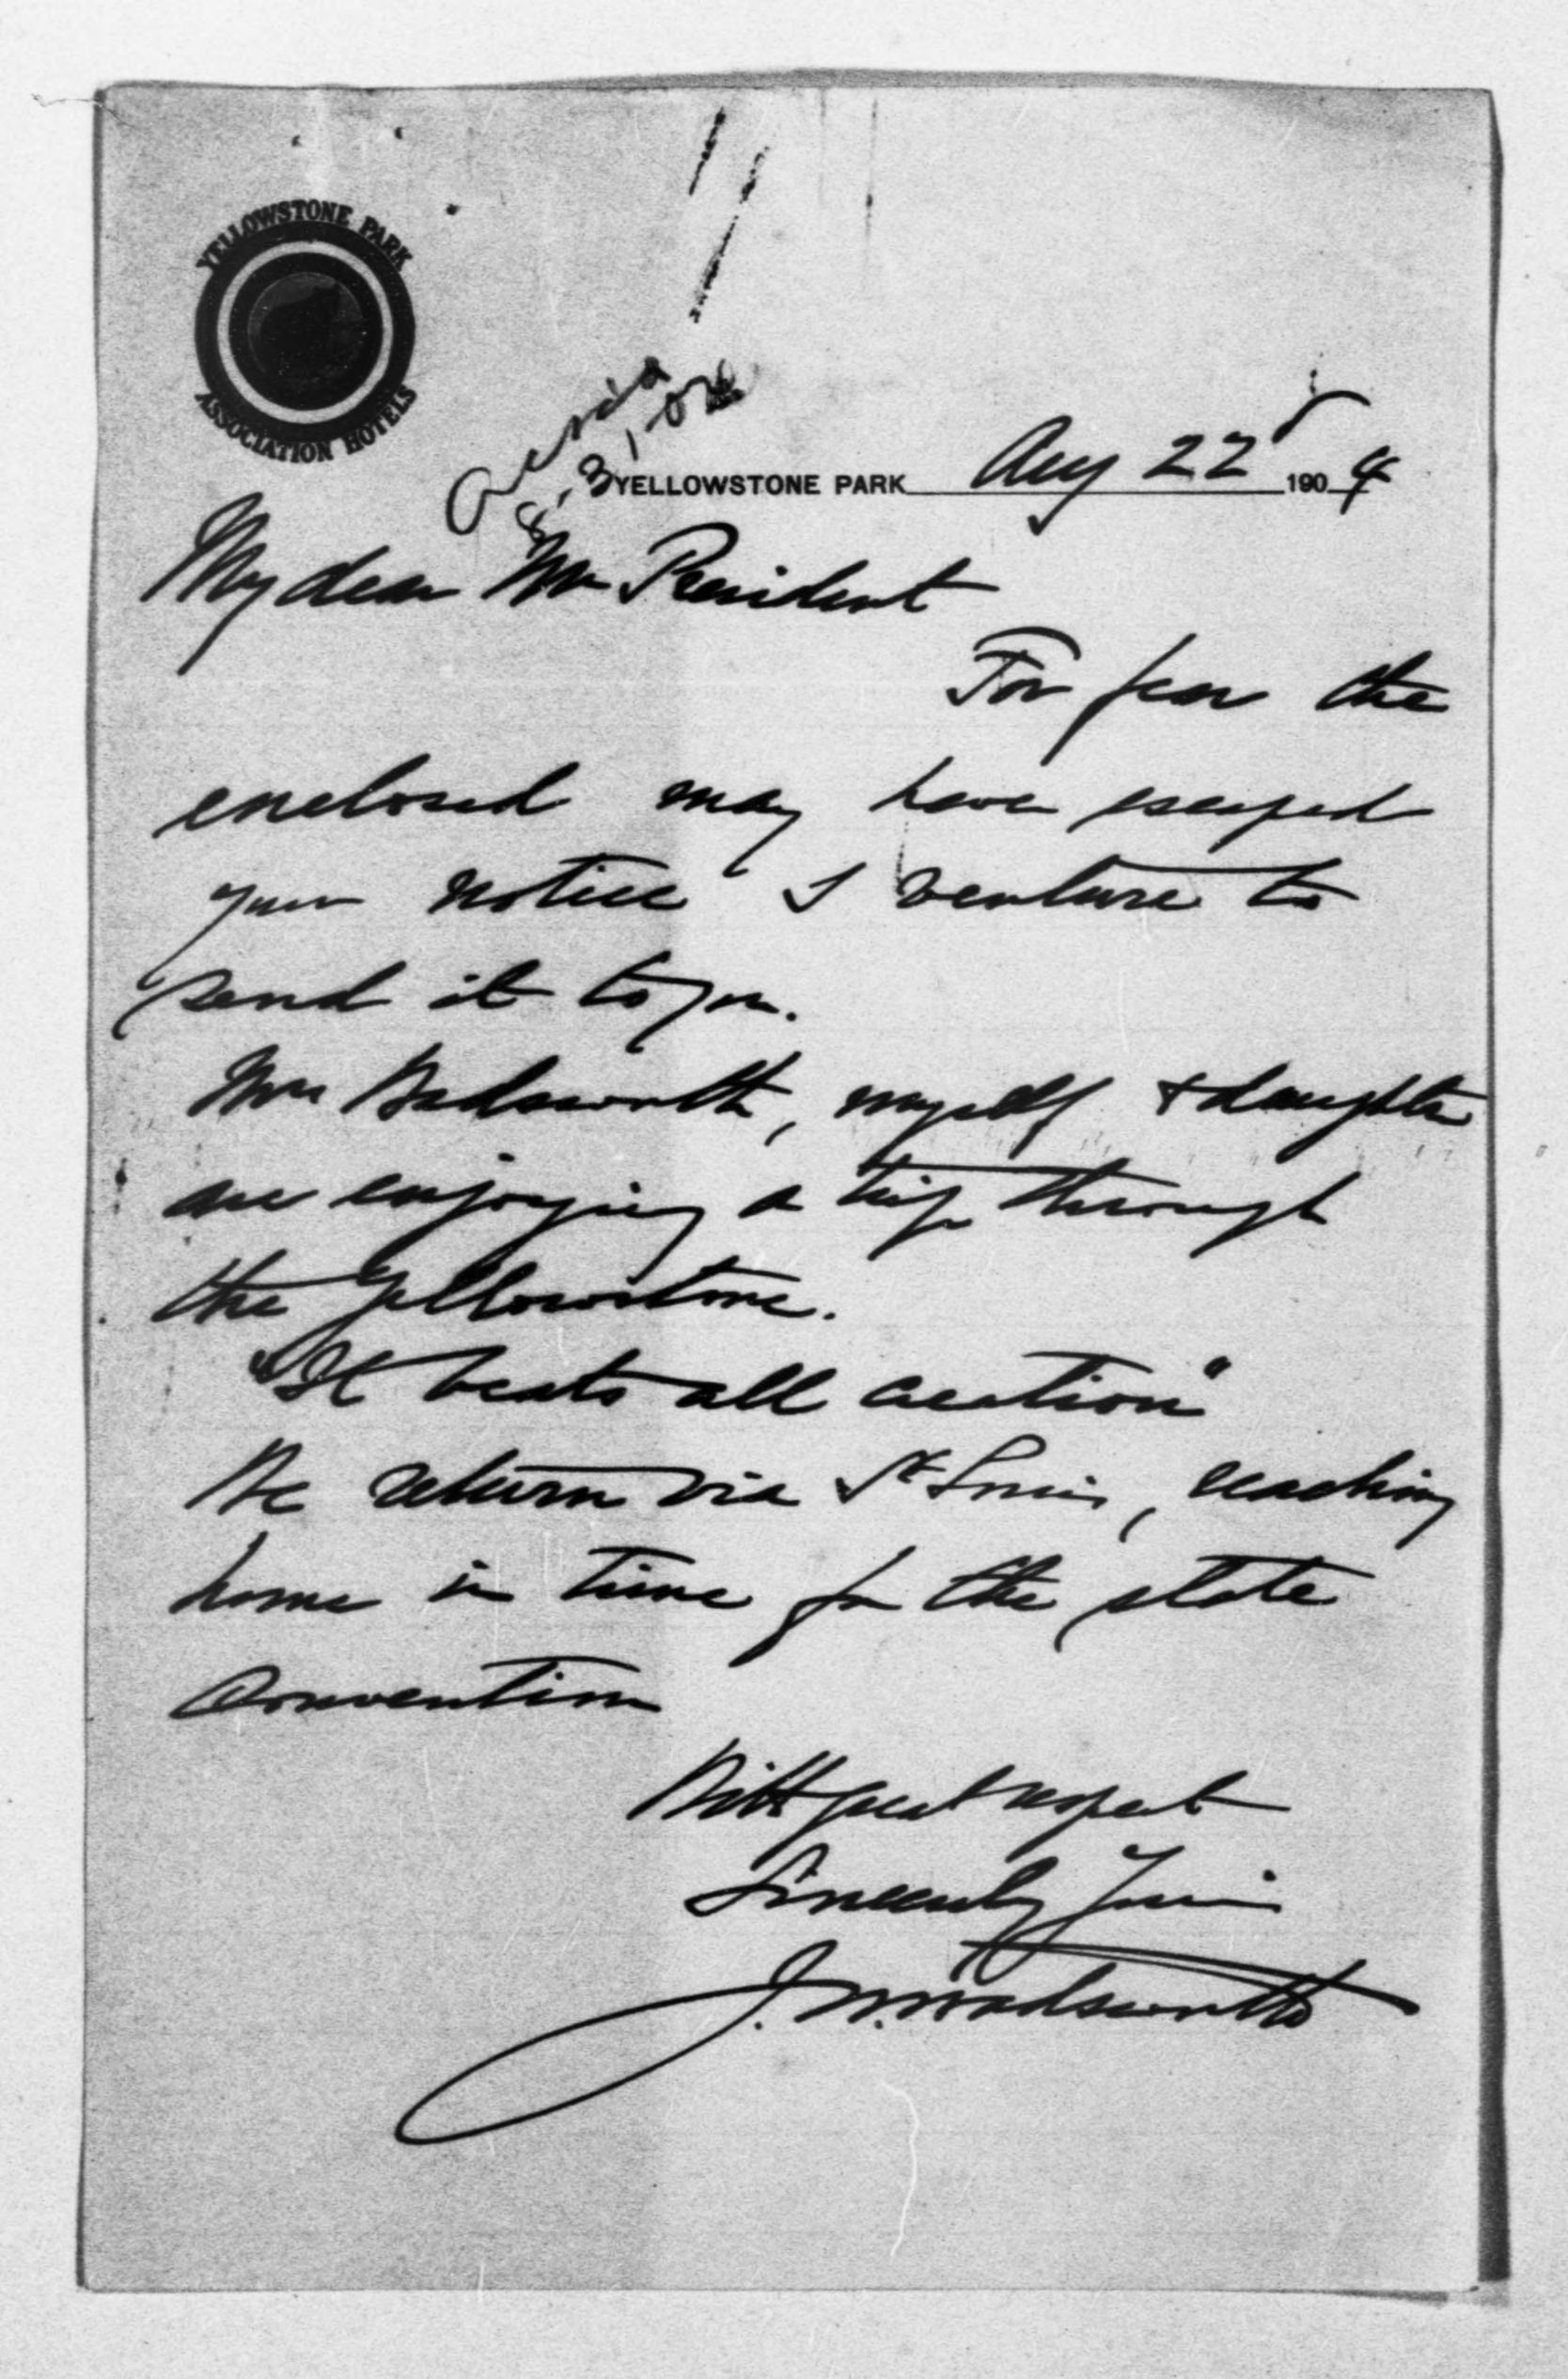 YELLOWSTONE PARK
ASSOCIATION HOTELS
Ack'd
8-31-04
YELLOWSTONE PARK Aug 22 1904
My dear Mr President
For fear the
enclosed may have escaped
your notice I venture to
send it to you.
Mrs Wadsworth, myself & daughter
are enjoying a trip through
the Yellowstone.
"It beats all creation"
We return via St Louis, reaching
home in time for the state
Convention
With great respect
Sincerely Yours
J. W. Wadsworth